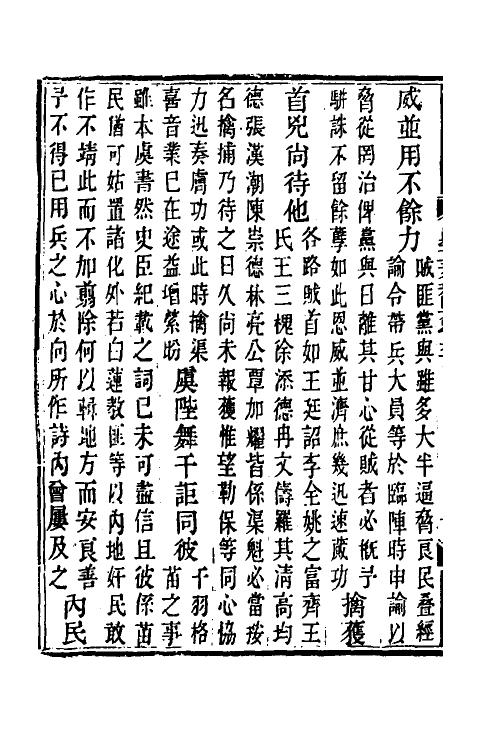 威並用不餘力
賊匪黨與雖多大半逼脅良民叠經
諭令帶兵大員等於臨陣時申諭以
脅從罔治俾黨與日離其甘心從賊者必概予
駢誅不留餘孽如此恩威並濟庶幾迅速蕆功
擒獲
首兇尚待他
各路賊首如王廷詔李全姚之富齊王
氏王三槐徐添德冉文儔羅其清高均
德張漢潮陳崇德林亮公覃加耀皆係渠魁必當按
名擒捕乃待之日久尚未報獲惟望勒保等同心協
力迅奏膚功或此時擒渠
喜音業已在途益增縈盼
虞陛舞干詎同彼
干羽格
苗之事
雖本虞書然史臣紀載之詞已未可盡信且彼係苗
民猶可姑置諸化外若白蓮教匪等以內地奸民敢
作不靖此而不加翦除何以輯地方而安良善
予不得已用兵之心於向所作詩內曾屢及之
內民